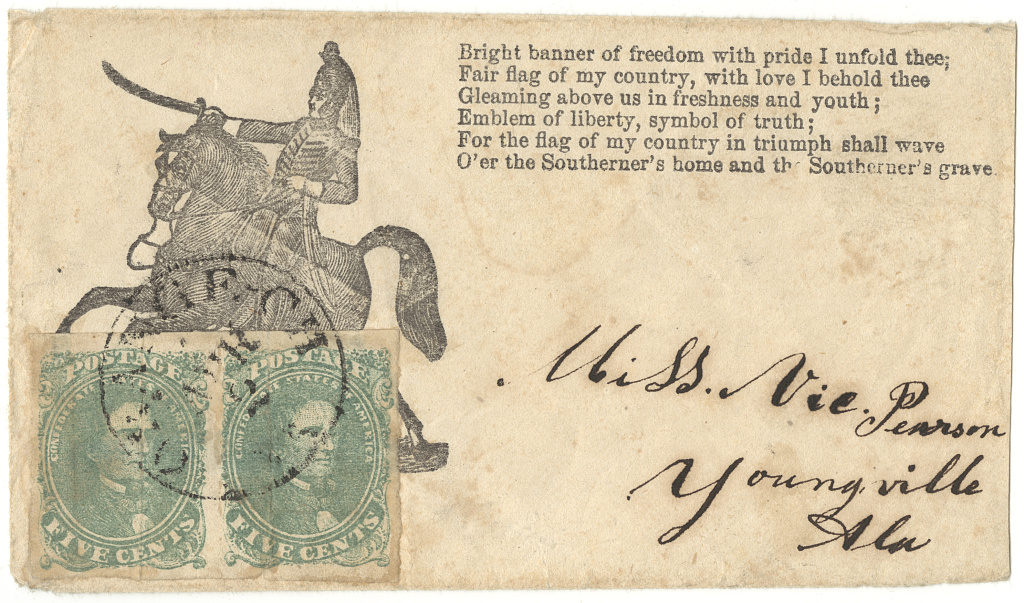 Bright banner of freedom with pride I unfold thee;
Fair flag of my country, with love I behold thee
Gleaming above us in freshness and youth;
Emblem of liberty, symbol of truth;
For the flag of my country in triumph shall wave
O'er the Southerner's home and the Southerner's grave
Miss. Vic. Pearson
Youngville
Ala
POSTAGE
CONFEDERATE STATES OF AMERICA
FIVE CENTS
POSTAGE
CONFEDERATE STATES OF AMERICA
FIVE CENTS